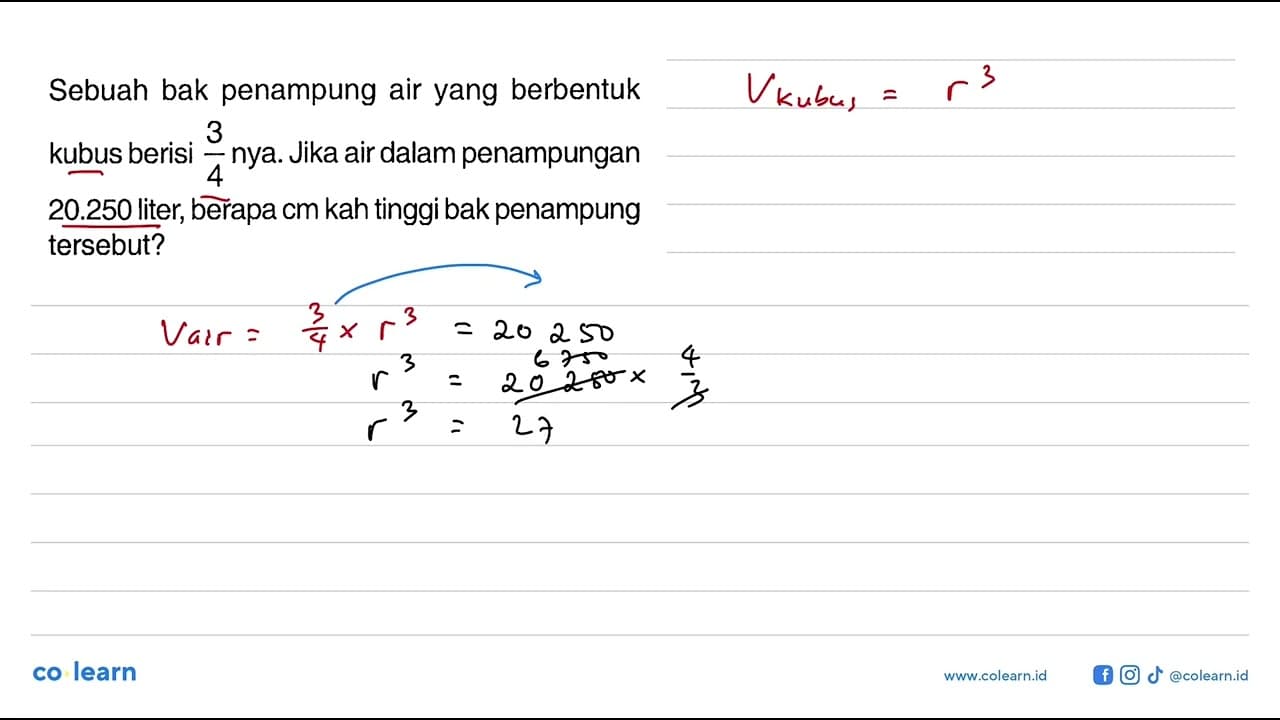 Sebuah bak penampung air yang berbentuk
kubus berisi 3/4 nya. Jika air dalam penampungan
20.250 liter, berapa cm kah tinggi bak penampung
tersebut?
V kubus = r³
Vair = 3/4 × r³ = 20 250
6 750
r³ = 20 250 × 4/3
r³ = 27
co learn
www.colearn.id
@colearn.id